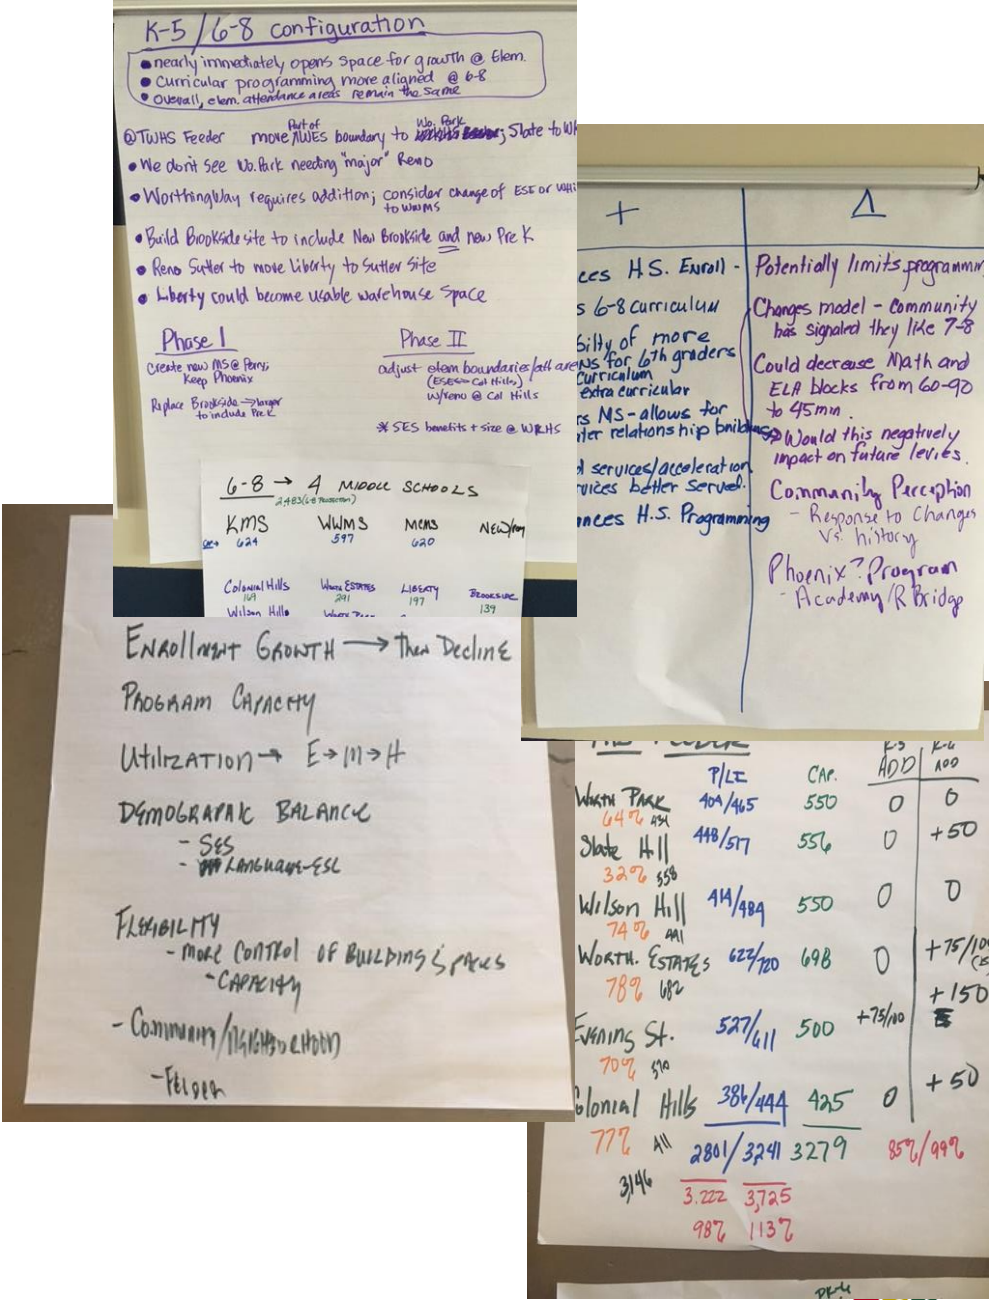 K-5 / 6-8 configuration
• nearly immediately opens space for growth @ Elem.
• Curricular programming more aligned @ 6-8
• Overall, elem. attendance areas remain the same
@TWHS Feeder move Part of WES boundary to Wo. Park ; Slate to
• We don't see Wo. Park needing "major" Reno
• Worthingway requires addition; consider change of ESE or
to WWMS
• Build Brookside site to include New Brookside and new Pre K
• Reno Sutter to move Liberty to Sutter Site
• Liberty could become usable warehouse space
Phase I
Create new MS @ Perry;
Keep Phoenix
Replace Brookside → larger
to include Pre K
Phase II
adjust elem boundaries/att area
(ESES → Col Hills)
w/reno @ Col Hills
* SES benefits + size @ WKHS
6-8 → 4 MIDDLE SCHOOLS
2483 (6-8 PROJECTION)
KMS WWMS MCMS NEW/
624 597 620
Colonial Hills Worth Estates Liberty Brookside
169 291 197 139
Wilson Hill
+ Δ
ces H.S. Enroll -
s 6-8 curriculum
bility of more
ns for 6th graders
curriculum
extra curricular
rs MS - allows for
ter relationship building
d services/acceleration
rvices better served.
nces H.S. Programming
Potentially limits programmin
Changes model - Community
has signaled they like 7-8
Could decrease Math and
ELA blocks from 60-90
to 45 min.
Would this negatively
impact on future levies.
Community Perception
- Response to Changes
vs. history
Phoenix? Program
- Academy/R Bridge
ENROLLMENT GROWTH → Then Decline
PROGRAM CAPACITY
UTILIZATION → E → M → H
DEMOGRAPHIC BALANCE
- SES
- LANGUAGE-ESL
FLEXIBILITY
- MORE CONTROL OF BUILDING SPACES
- CAPACITY
- Community/NEIGHBORHOOD
- FEEDER
FEEDER
P/LI CAP. K-5 ADD K-6 ADD
Worth Park 404/465 550 0 0
64% 434
Slate Hill 448/517 556 0 +50
32% 558
Wilson Hill 414/484 550 0 0
74% 491
Worth. Estates 622/720 698 0 +75/100
78% 682
Evening St. 527/611 500 +75/100 +150
70% 570
Colonial Hills 386/444 425 0 +50
77% 411 2801/3241 3279 85%/99%
3,146 3,222 3,725
98% 113%